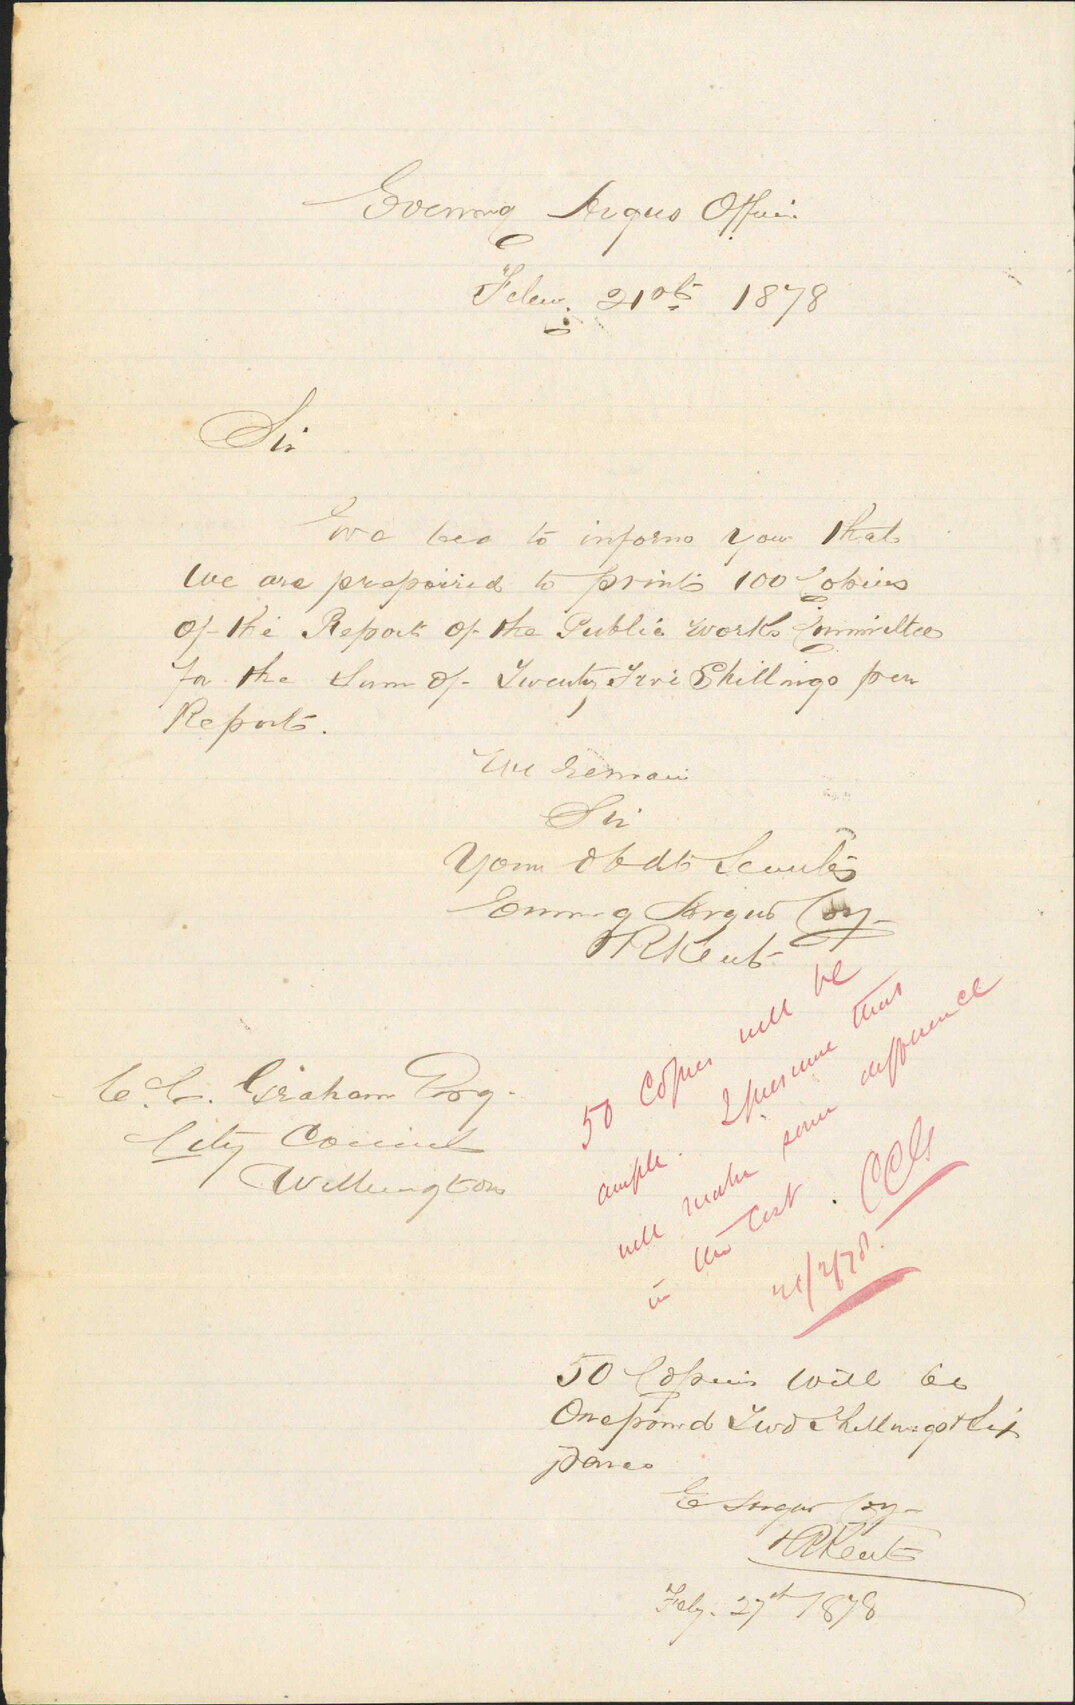 Evening Argus Office
Feby. 21st 1878
Sir
We beg to inform you that
we are prepaired to print 100 Copies
of the Report of the Public Works Committee
for the Sum of Twenty Five Shillings per
Report.
We remain
Sir
Your Obdt Servants
Evening Argus Coy
HRKent
50 Copies will be
ample. I presume that
will make some difference
in the Cost. CCG
21/2/78.
C. C. Graham Esq.
City Council
Wellington
50 Copies will be
One pound Two Shillings & Six
pence
E Argus Coy
HRKent
Feby. 27th 1878